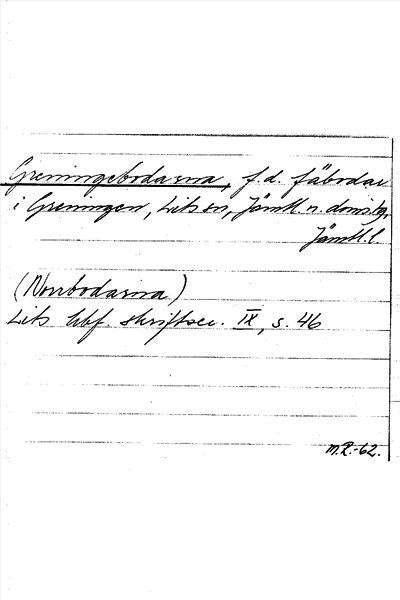 Greningebodarna, f.d. fäbodar
i Greningen, Lits sn, Jämtl. n. doms.g,
Jämtl. l.
(Norrbodarna)
Lits hbf. skriftser. IX, s. 46
M.R.-62.